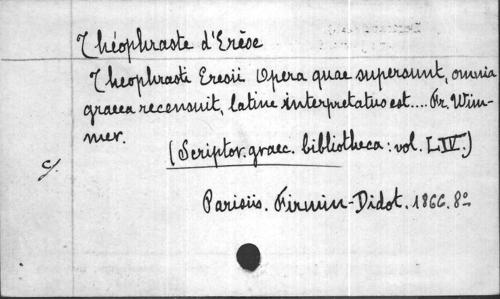 Théophraste d'Erèse
Theophrasti Eresii Opera quae supersunt, omnia
graeca recensuit, latine interpretatus est.... Fr. Wim-
mer.
(Scriptor. graec. bibliotheca: vol. LIV.)
c/.
Parisiis. Firmin-Didot. 1866. 8º